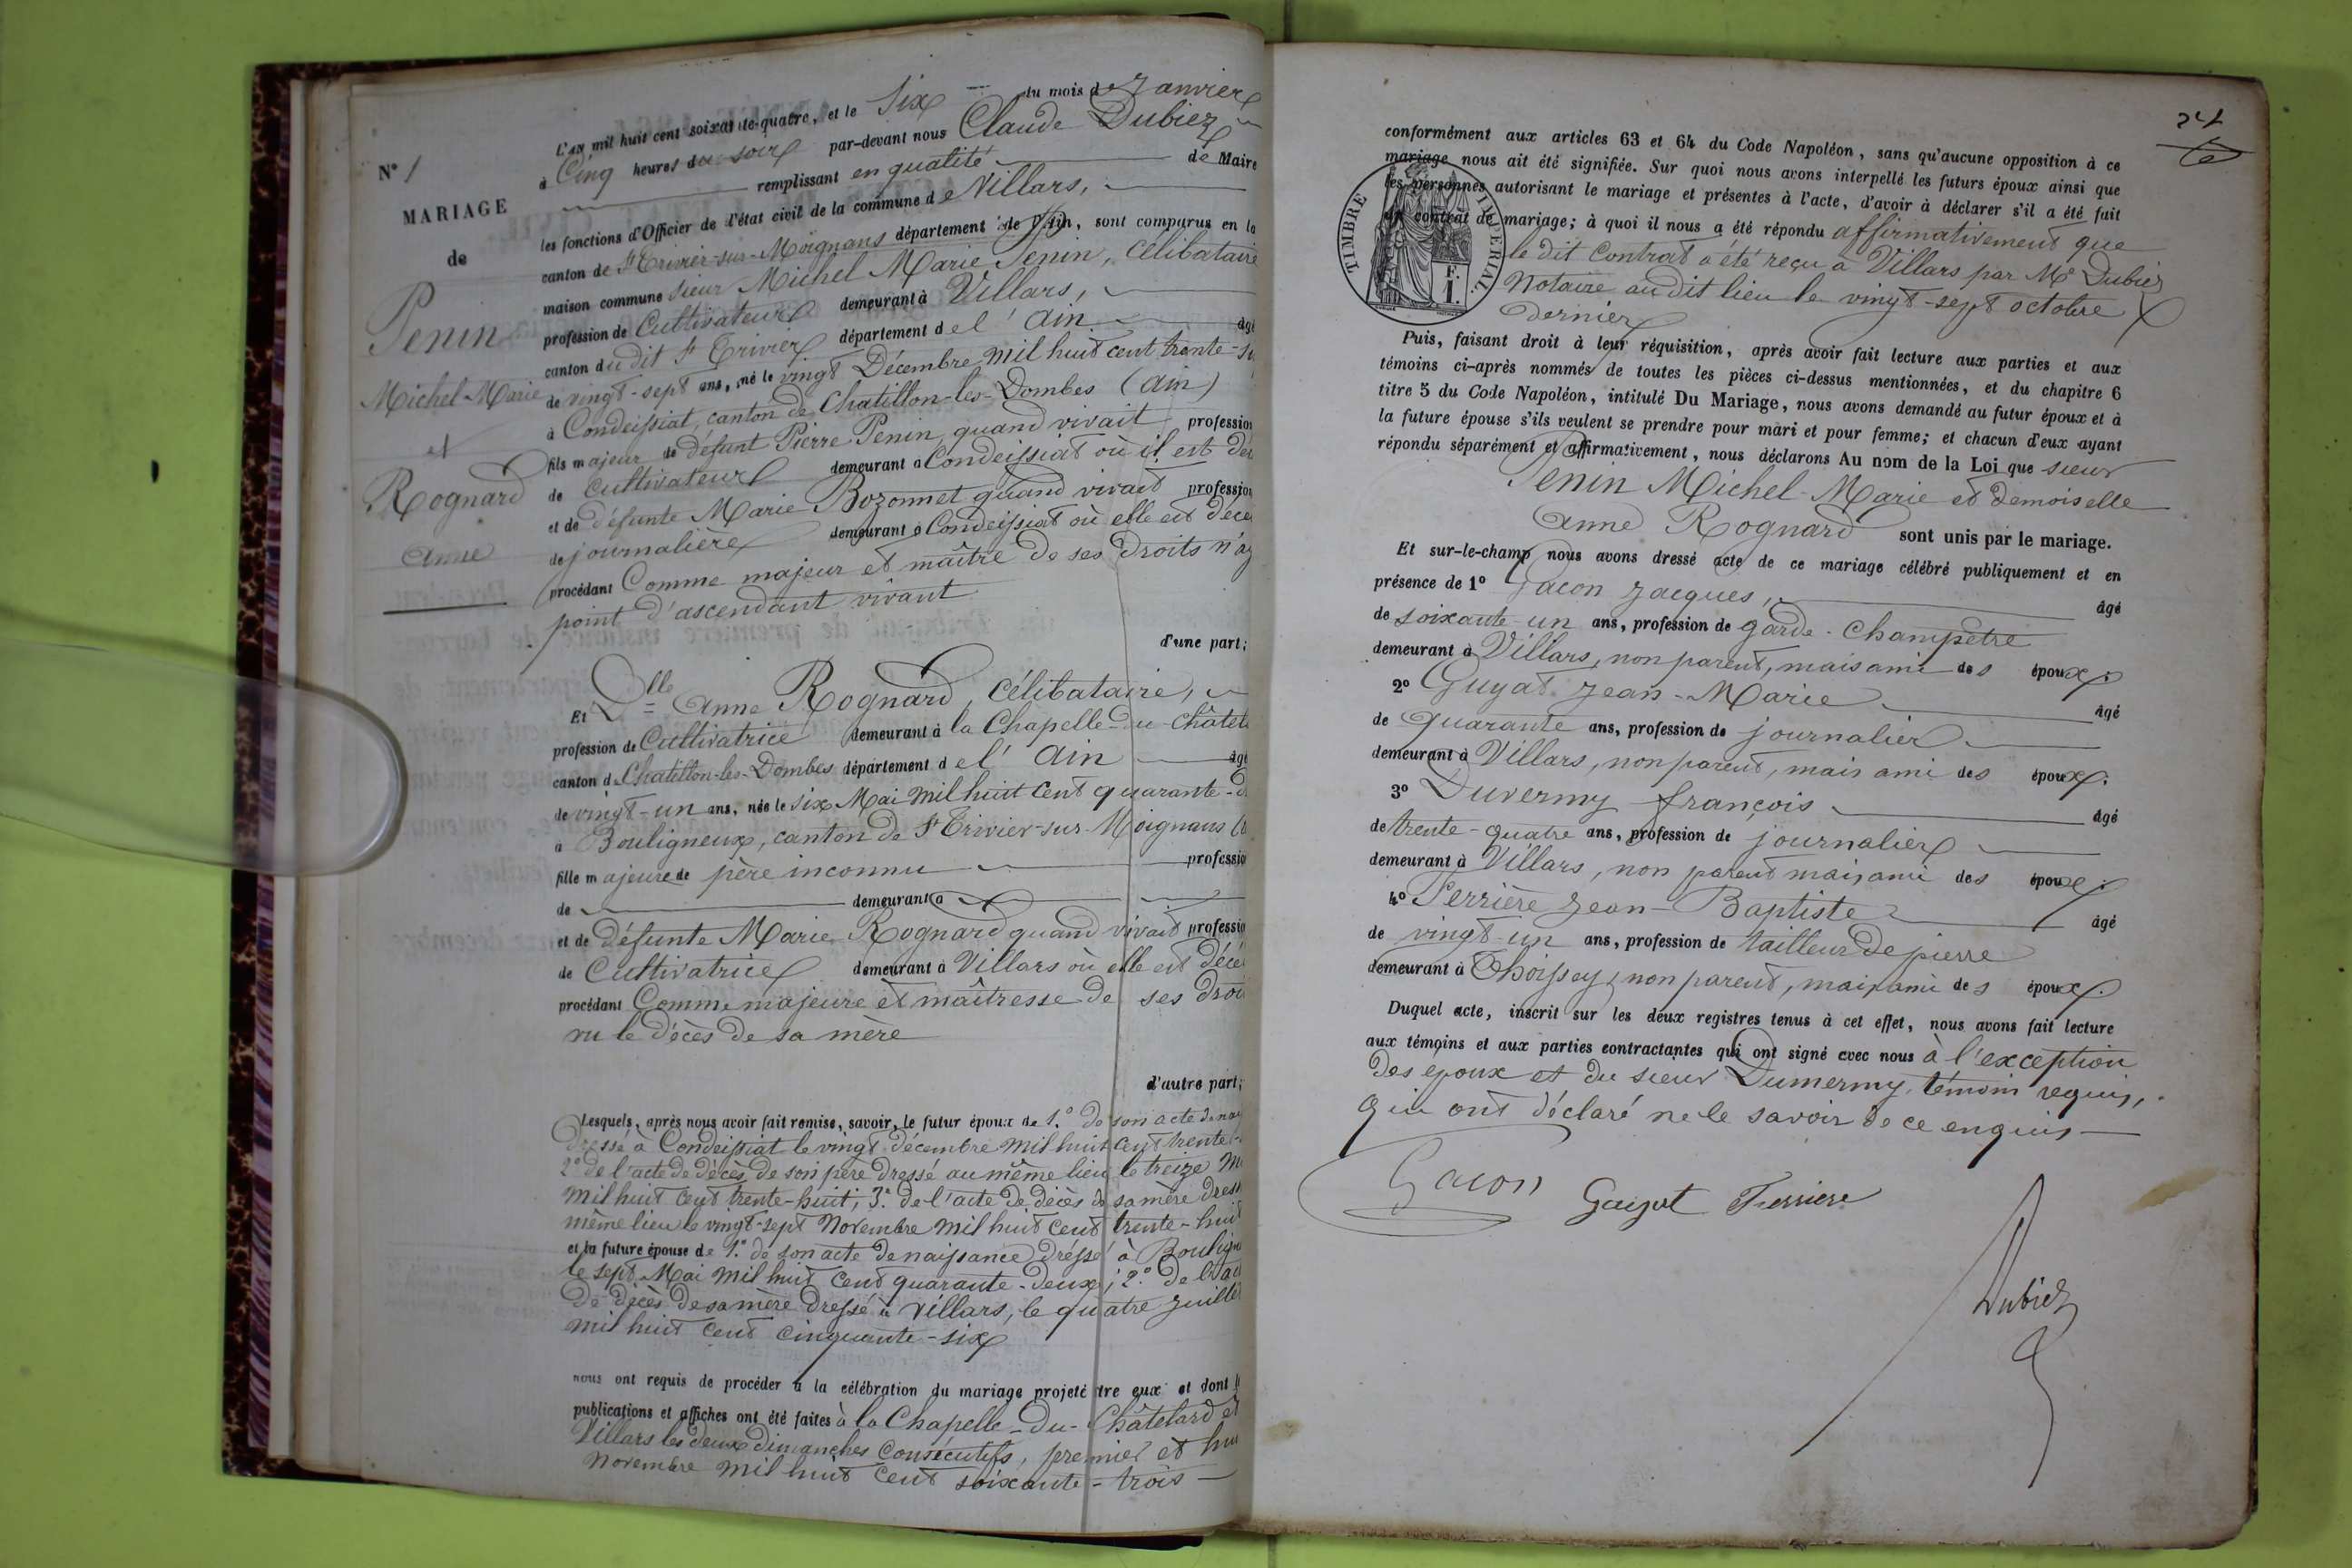 N° 1
MARIAGE
de
Penin
Michel-Marie
et
Rognard
Anne
L'an mil huit cent soixante-quatre, et le Six du mois de Janvier
à Cinq heures du soir par-devant nous Claude Dubiez
remplissant en qualité de Maire
les fonctions d'Officier de l'état civil de la commune de Villars,
canton de St Trivier-sur-Moignans département de l'Ain, sont comparus en la
maison commune sieur Michel Marie Penin, célibataire
profession de Cultivateur demeurant à Villars,
canton du dit St Trivier département de l'Ain âgé
de vingt-sept ans, né le vingt Décembre mil huit cent trente-
à Condeissiat, canton de Chatillon-les-Dombes (Ain)
fils majeur de défunt Pierre Penin, quand vivait profession
de cultivateur demeurant à Condeissiat où il est
et de défunte Marie Bozonnet quand vivait profession
de journalière demeurant à Condeissiat où elle est
procédant Comme majeur et maître de ses droits
point d'ascendant vivant
d'une part;
Et Dlle Anne Rognard, célibataire,
profession de Cultivatrice demeurant à la Chapelle-du-
canton de Chatillon-les-Dombes département de l'Ain âgé
de vingt-un ans, née le six Mai mil huit cent quarante-
à Bouligneux, canton de St Trivier-sur-Moignans
fille majeure de père inconnu profession
de demeurant à
et de défunte Marie Rognard quand vivait profession
de Cultivatrice demeurant à Villars où elle est
procédant Comme majeure et maîtresse de ses
vu le décès de sa mère
d'autre part;
Lesquels, après nous avoir fait remise, savoir, le futur époux de 1.° de son acte de
dressé à Condeissiat le vingt décembre mil huit cent trente-
2° de l'acte de décès de son père dressé au même lieu le treize
mil huit cent trente-huit; 3.° de l'acte de décès de sa mère
même lieu le vingt-sept Novembre mil huit cent trente-huit
et la future épouse de 1.° de son acte de naissance dressé à
le sept Mai mil huit cent quarante-deux; 2.° de
de décès de sa mère dressé à Villars, le quatre Juillet
mil huit cent cinquante-six
nous ont requis de procéder à la célébration du mariage projeté tre eux et dont
publications et affiches ont été faites à la Chapelle-du-Châtelard et
Villars les deux dimanches consécutifs, premier et
novembre mil huit cent soixante-trois
TIMBRE IMPERIAL
conformément aux articles 63 et 64 du Code Napoléon, sans qu'aucune opposition à ce
mariage nous ait été signifiée. Sur quoi nous avons interpellé les futurs époux ainsi que
les personnes autorisant le mariage et présentes à l'acte, d'avoir à déclarer s'il a été fait
un contrat de mariage; à quoi il nous a été répondu affirmativement que
le dit Contrat a été reçu à Villars par Me Dubiez
Notaire au dit lieu le vingt-sept octobre
dernier
Puis, faisant droit à leur réquisition, après avoir fait lecture aux parties et aux
témoins ci-après nommés de toutes les pièces ci-dessus mentionnées, et du chapitre 6
titre 5 du Code Napoléon, intitulé Du Mariage, nous avons demandé au futur époux et à
la future épouse s'ils veulent se prendre pour mari et pour femme; et chacun d'eux ayant
répondu séparément et affirmativement, nous déclarons Au nom de la Loi que sieur
Penin Michel-Marie et demoiselle
Anne Rognard sont unis par le mariage.
Et sur-le-champ nous avons dressé acte de ce mariage célébré publiquement et en
présence de 1° Gacon Jacques, âgé
de soixante-un ans, profession de garde-champêtre
demeurant à Villars, non parent, mais ami des époux;
2° Guyat Jean-Marie âgé
de quarante ans, profession de journalier
demeurant à Villars, non parent, mais ami des époux;
3° Duvermy françois âgé
de trente-quatre ans, profession de journalier
demeurant à Villars, non parent mais ami des époux;
4° Ferrière Jean-Baptiste âgé
de vingt-un ans, profession de tailleur de pierre
demeurant à Thoissey, non parent, mais ami des époux
Duquel acte, inscrit sur les deux registres tenus à cet effet, nous avons fait lecture
aux témoins et aux parties contractantes qui ont signé avec nous à l'exception
des époux et du sieur Dumermy, témoin requis,
qui ont déclaré ne le savoir de ce enquis
Gacon Guyot Ferriere
Dubiez